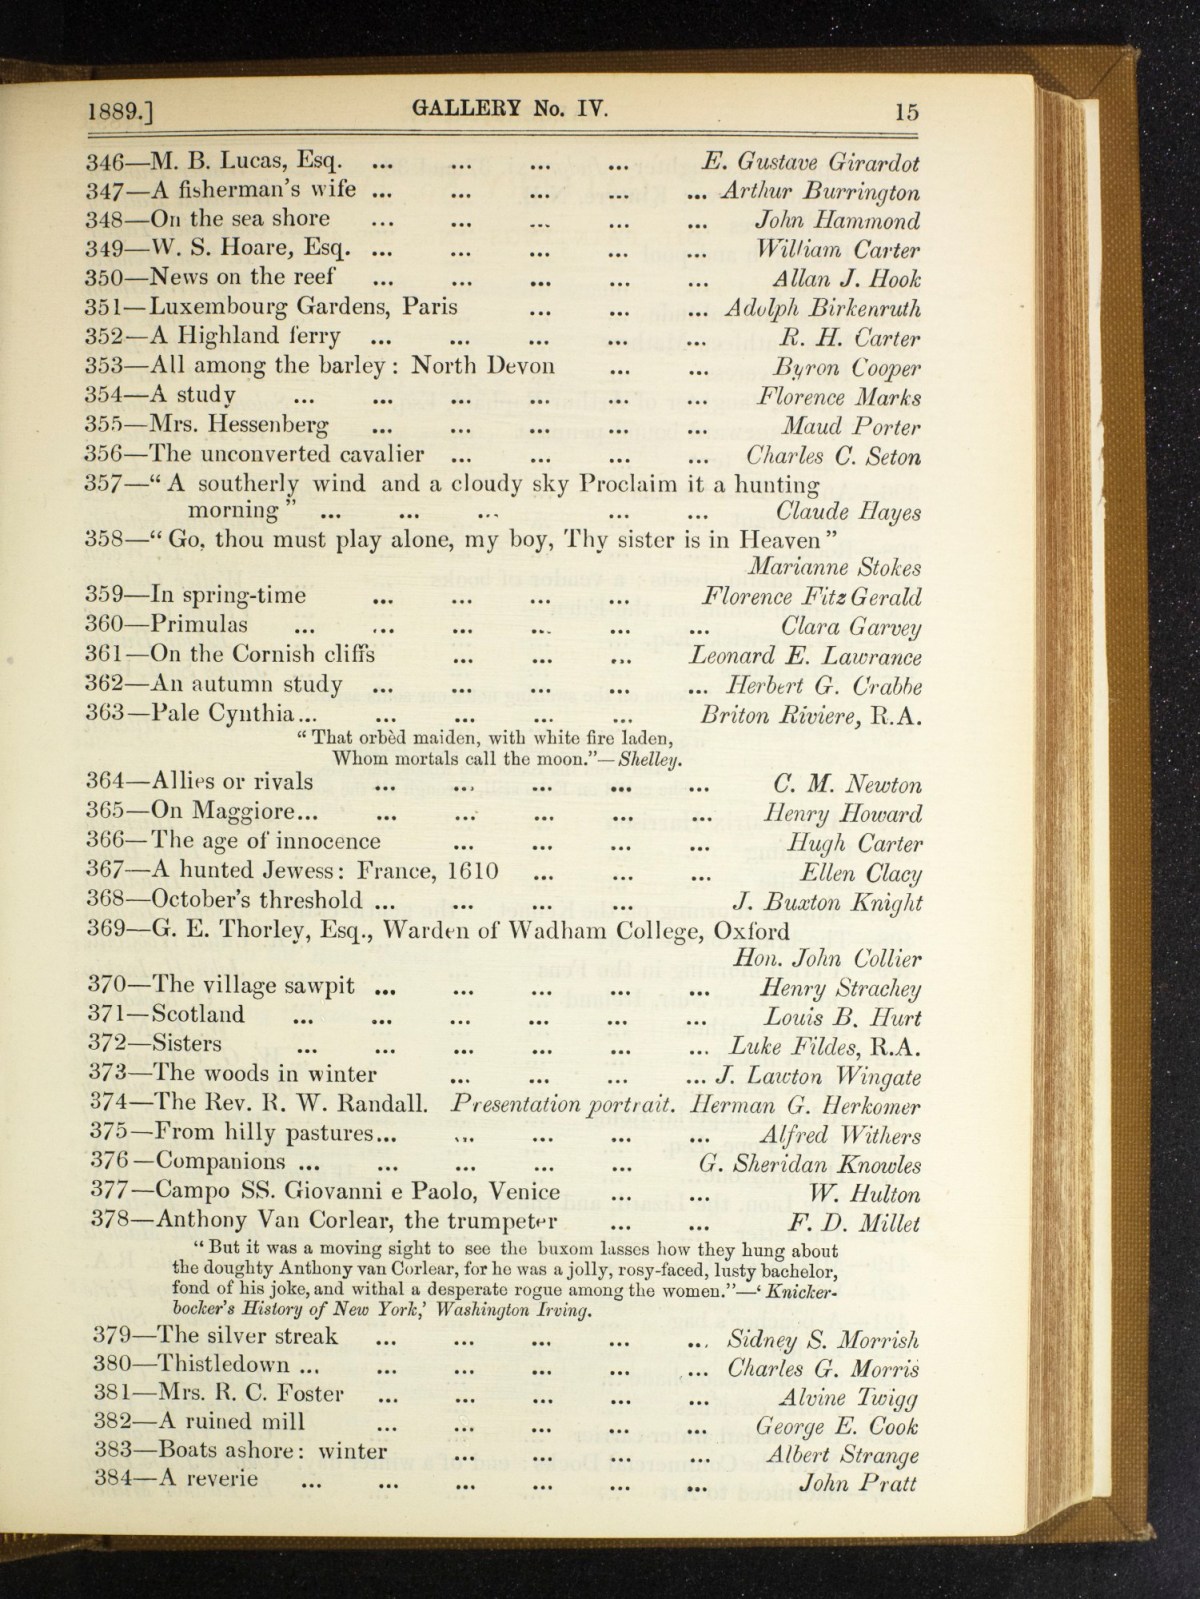 1889.] GALLERY No. IV. 15
346—M. B. Lucas, Esq. ... ... ... ... E. Gustave Girardot
347—A fisherman's wife ... ... ... ... ... Arthur Burrington
348—On the sea shore ... ... ... ... ... John Hammond
349—W. S. Hoare, Esq. ... ... ... ... ... William Carter
350—News on the reef ... ... ... ... ... Allan J. Hook
351—Luxembourg Gardens, Paris ... ... ... Adolph Birkenruth
352—A Highland ferry ... ... ... ... ... R. H. Carter
353—All among the barley: North Devon ... ... Byron Cooper
354—A study ... ... ... ... ... ... Florence Marks
355—Mrs. Hessenberg ... ... ... ... ... Maud Porter
356—The unconverted cavalier ... ... ... ... Charles C. Seton
357—“A southerly wind and a cloudy sky Proclaim it a hunting
morning” ... ... ... ... ... Claude Hayes
358—“Go, thou must play alone, my boy, Thy sister is in Heaven”
Marianne Stokes
359—In spring-time ... ... ... ... Florence FitzGerald
360—Primulas ... ... ... ... ... ... Clara Garvey
361—On the Cornish cliffs ... ... ... Leonard E. Lawrance
362—An autumn study ... ... ... ... ... Herbert G. Crabbe
363—Pale Cynthia... ... ... ... ... Briton Riviere, R.A.
“That orbèd maiden, with white fire laden,
Whom mortals call the moon.”—Shelley.
364—Allies or rivals ... ... ... ... ... C. M. Newton
365—On Maggiore... ... ... ... ... ... Henry Howard
366—The age of innocence ... ... ... ... Hugh Carter
367—A hunted Jewess: France, 1610 ... ... ... Ellen Clacy
368—October's threshold ... ... ... ... J. Buxton Knight
369—G. E. Thorley, Esq., Warden of Wadham College, Oxford
Hon. John Collier
370—The village sawpit ... ... ... ... ... Henry Strachey
371—Scotland ... ... ... ... ... ... Louis B. Hurt
372—Sisters ... ... ... ... ... ... Luke Fildes, R.A.
373—The woods in winter ... ... ... ... J. Lawton Wingate
374—The Rev. R. W. Randall. Presentation portrait. Herman G. Herkomer
375—From hilly pastures... ... ... ... ... Alfred Withers
376—Companions ... ... ... ... ... G. Sheridan Knowles
377—Campo SS. Giovanni e Paolo, Venice ... ... W. Hulton
378—Anthony Van Corlear, the trumpeter ... ... F. D. Millet
“But it was a moving sight to see the buxom lasses how they hung about
the doughty Anthony van Corlear, for he was a jolly, rosy-faced, lusty bachelor,
fond of his joke, and withal a desperate rogue among the women.”—‘Knicker-
bocker's History of New York,’ Washington Irving.
379—The silver streak ... ... ... ... ... Sidney S. Morrish
380—Thistledown ... ... ... ... ... ... Charles G. Morris
381—Mrs. R. C. Foster ... ... ... ... ... Alvine Twigg
382—A ruined mill ... ... ... ... ... George E. Cook
383—Boats ashore: winter ... ... ... ... Albert Strange
384—A reverie ... ... ... ... ... ... John Pratt